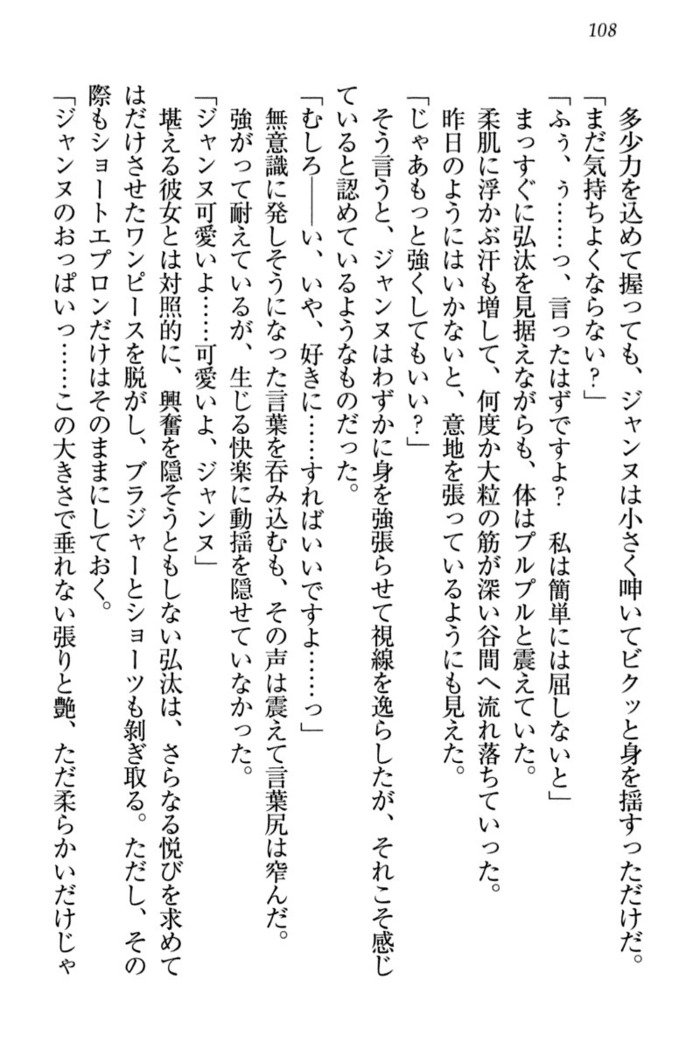 108
多少力を込めて握っても、ジャンヌは小さく呻いてビクッと身を揺すっただけだ。
「まだ気持ちよくならない？」
「ふぅ、ぅ……っ、言ったはずですよ？　私は簡単には屈しないと」
まっすぐに弘汰を見据えながらも、体はプルプルと震えていた。
柔肌に浮かぶ汗も増して、何度か大粒の筋が深い谷間へ流れ落ちていった。
昨日のようにはいかないと、意地を張っているようにも見えた。
「じゃあもっと強くしてもいい？」
そう言うと、ジャンヌはわずかに身を強張らせて視線を逸らしたが、それこそ感じ
ていると認めているようなものだった。
「むしろ――い、いや、好きに……すればいいですよ……っ」
無意識に発しそうになった言葉を呑み込むも、その声は震えて言葉尻は窄んだ。
強がって耐えているが、生じる快楽に動揺を隠せていなかった。
「ジャンヌ可愛いよ……可愛いよ、ジャンヌ」
堪える彼女とは対照的に、興奮を隠そうともしない弘汰は、さらなる悦びを求めて
はだけさせたワンピースを脱がし、ブラジャーとショーツも剝ぎ取る。ただし、その
際もショートエプロンだけはそのままにしておく。
「ジャンヌのおっぱいっ……この大きさで垂れない張りと艶、ただ柔らかいだけじゃ